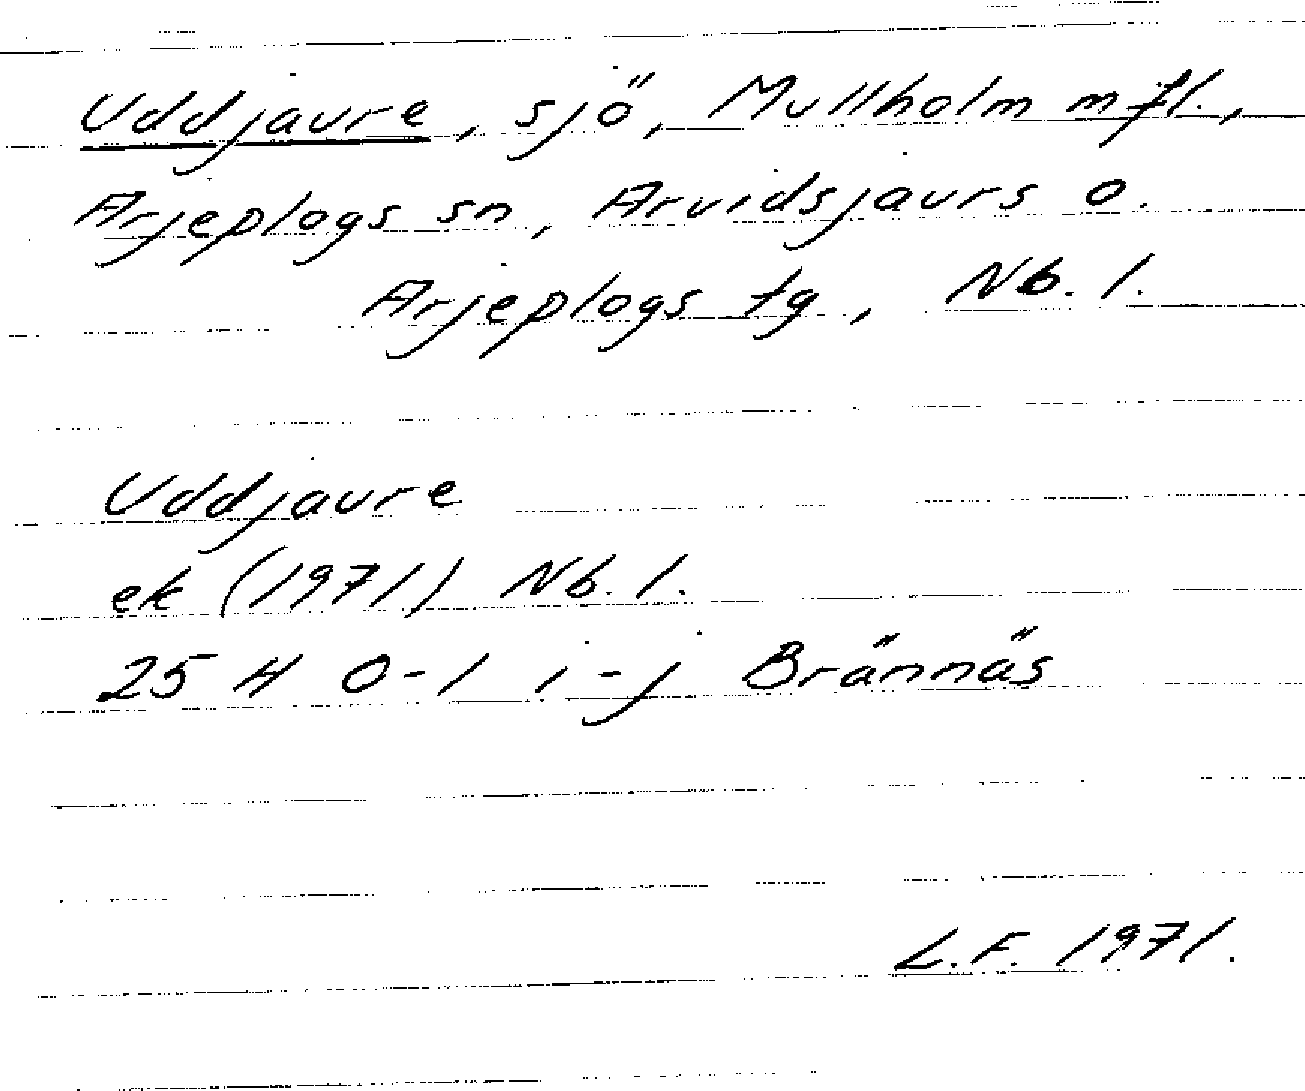 Uddjaure, sjö, Mullholm m fl.,
Arjeplogs sn, Arvidsjaurs o.
Arjeplogs tg, Nb. l.
Uddjaure
ek (1971) Nb. l.
25 H 0-1 i-j Brännäs
L.F. 1971.